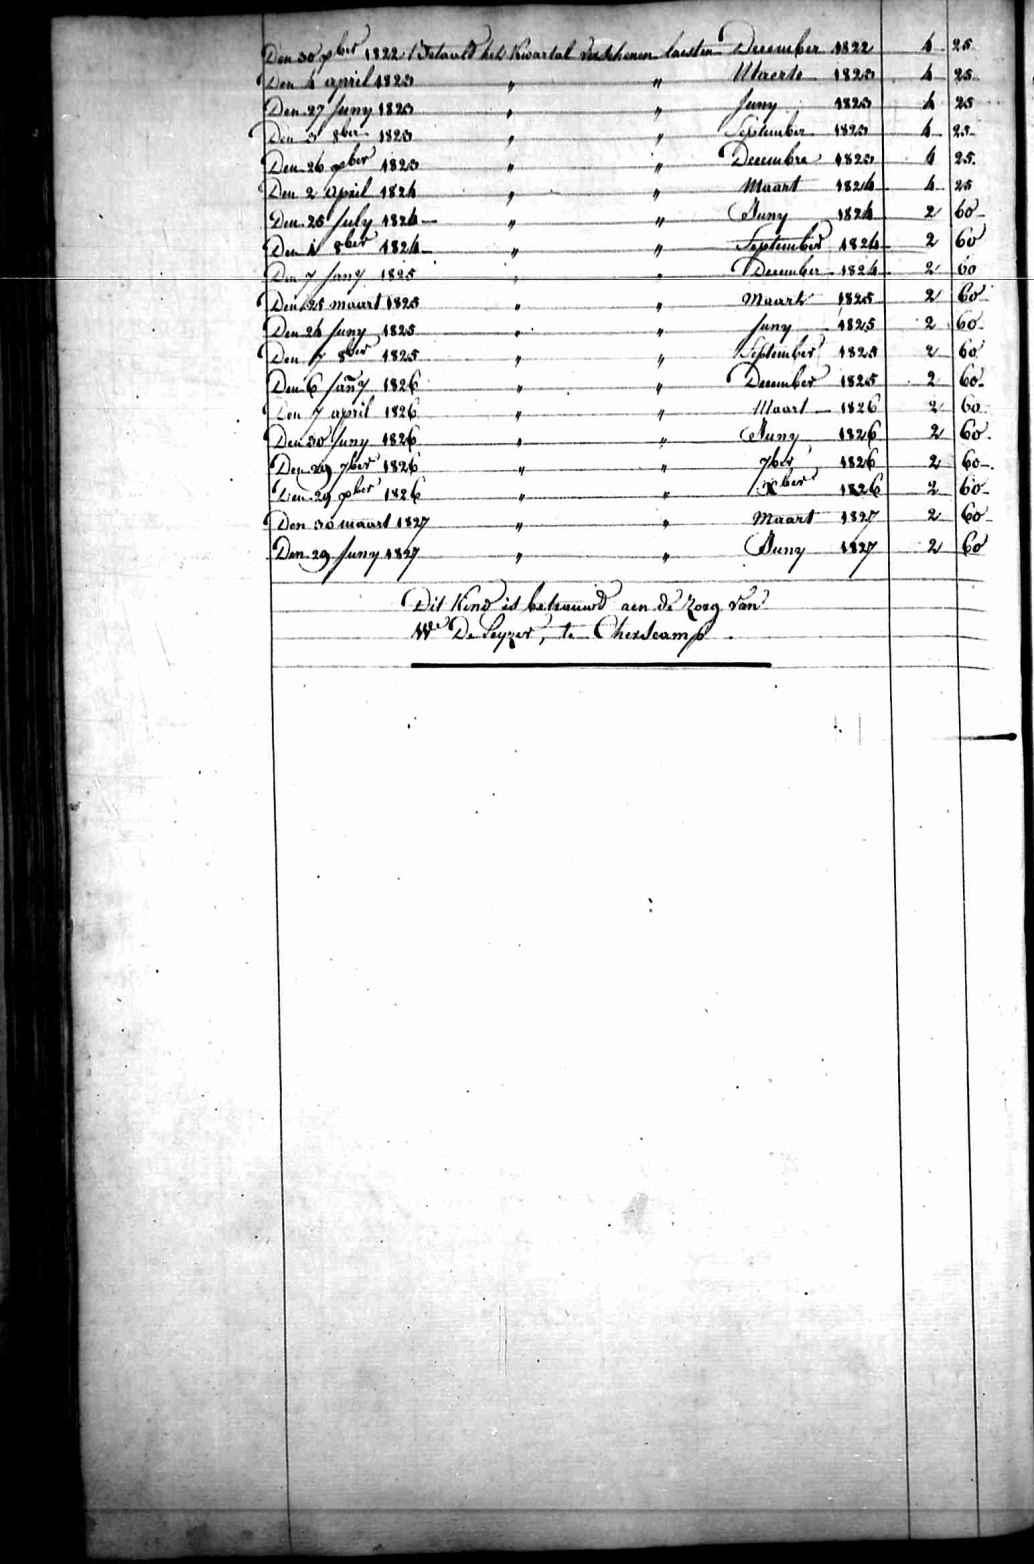 Den 30 xber 1822 Betaald het Kwartal verschenen laesten December 1822 4 25
Den 4 april 1823 " " Maerte 1823 4 25
Den 27 Juny 1823 " " Juny 1823 4 25
Den 3 8ber 1823 " " September 1823 4 25
Den 26 xber 1823 " " Decembre 1823 4 25
Den 2 april 1824 " " Maart 1824 4 25
Den 25 July 1824 " " Juny 1824 2 60
Den 1 8ber 1824 " " September 1824 2 60
Den 7 Jany 1825 " " December 1824 2 60
Den 25 maart 1825 " " Maart 1825 2 60
Den 24 Juny 1825 " " Juny 1825 2 60
Den 7 8ber 1825 " " September 1825 2 60
Den 6 Jany 1826 " " December 1825 2 60
Den 7 april 1826 " " Maart 1826 2 60
Den 30 Juny 1826 " " Juny 1826 2 60
Den 29 7ber 1826 " " 7ber 1826 2 60
Den 29 xber 1826 " " Xber 1826 2 60
Den 30 maart 1827 " " Maart 1827 2 60
Den 29 Juny 1827 " " Juny 1827 2 60
Dit Kind is betrouwd aen de Zorg van
We De Seyzer, te Cherscamp.